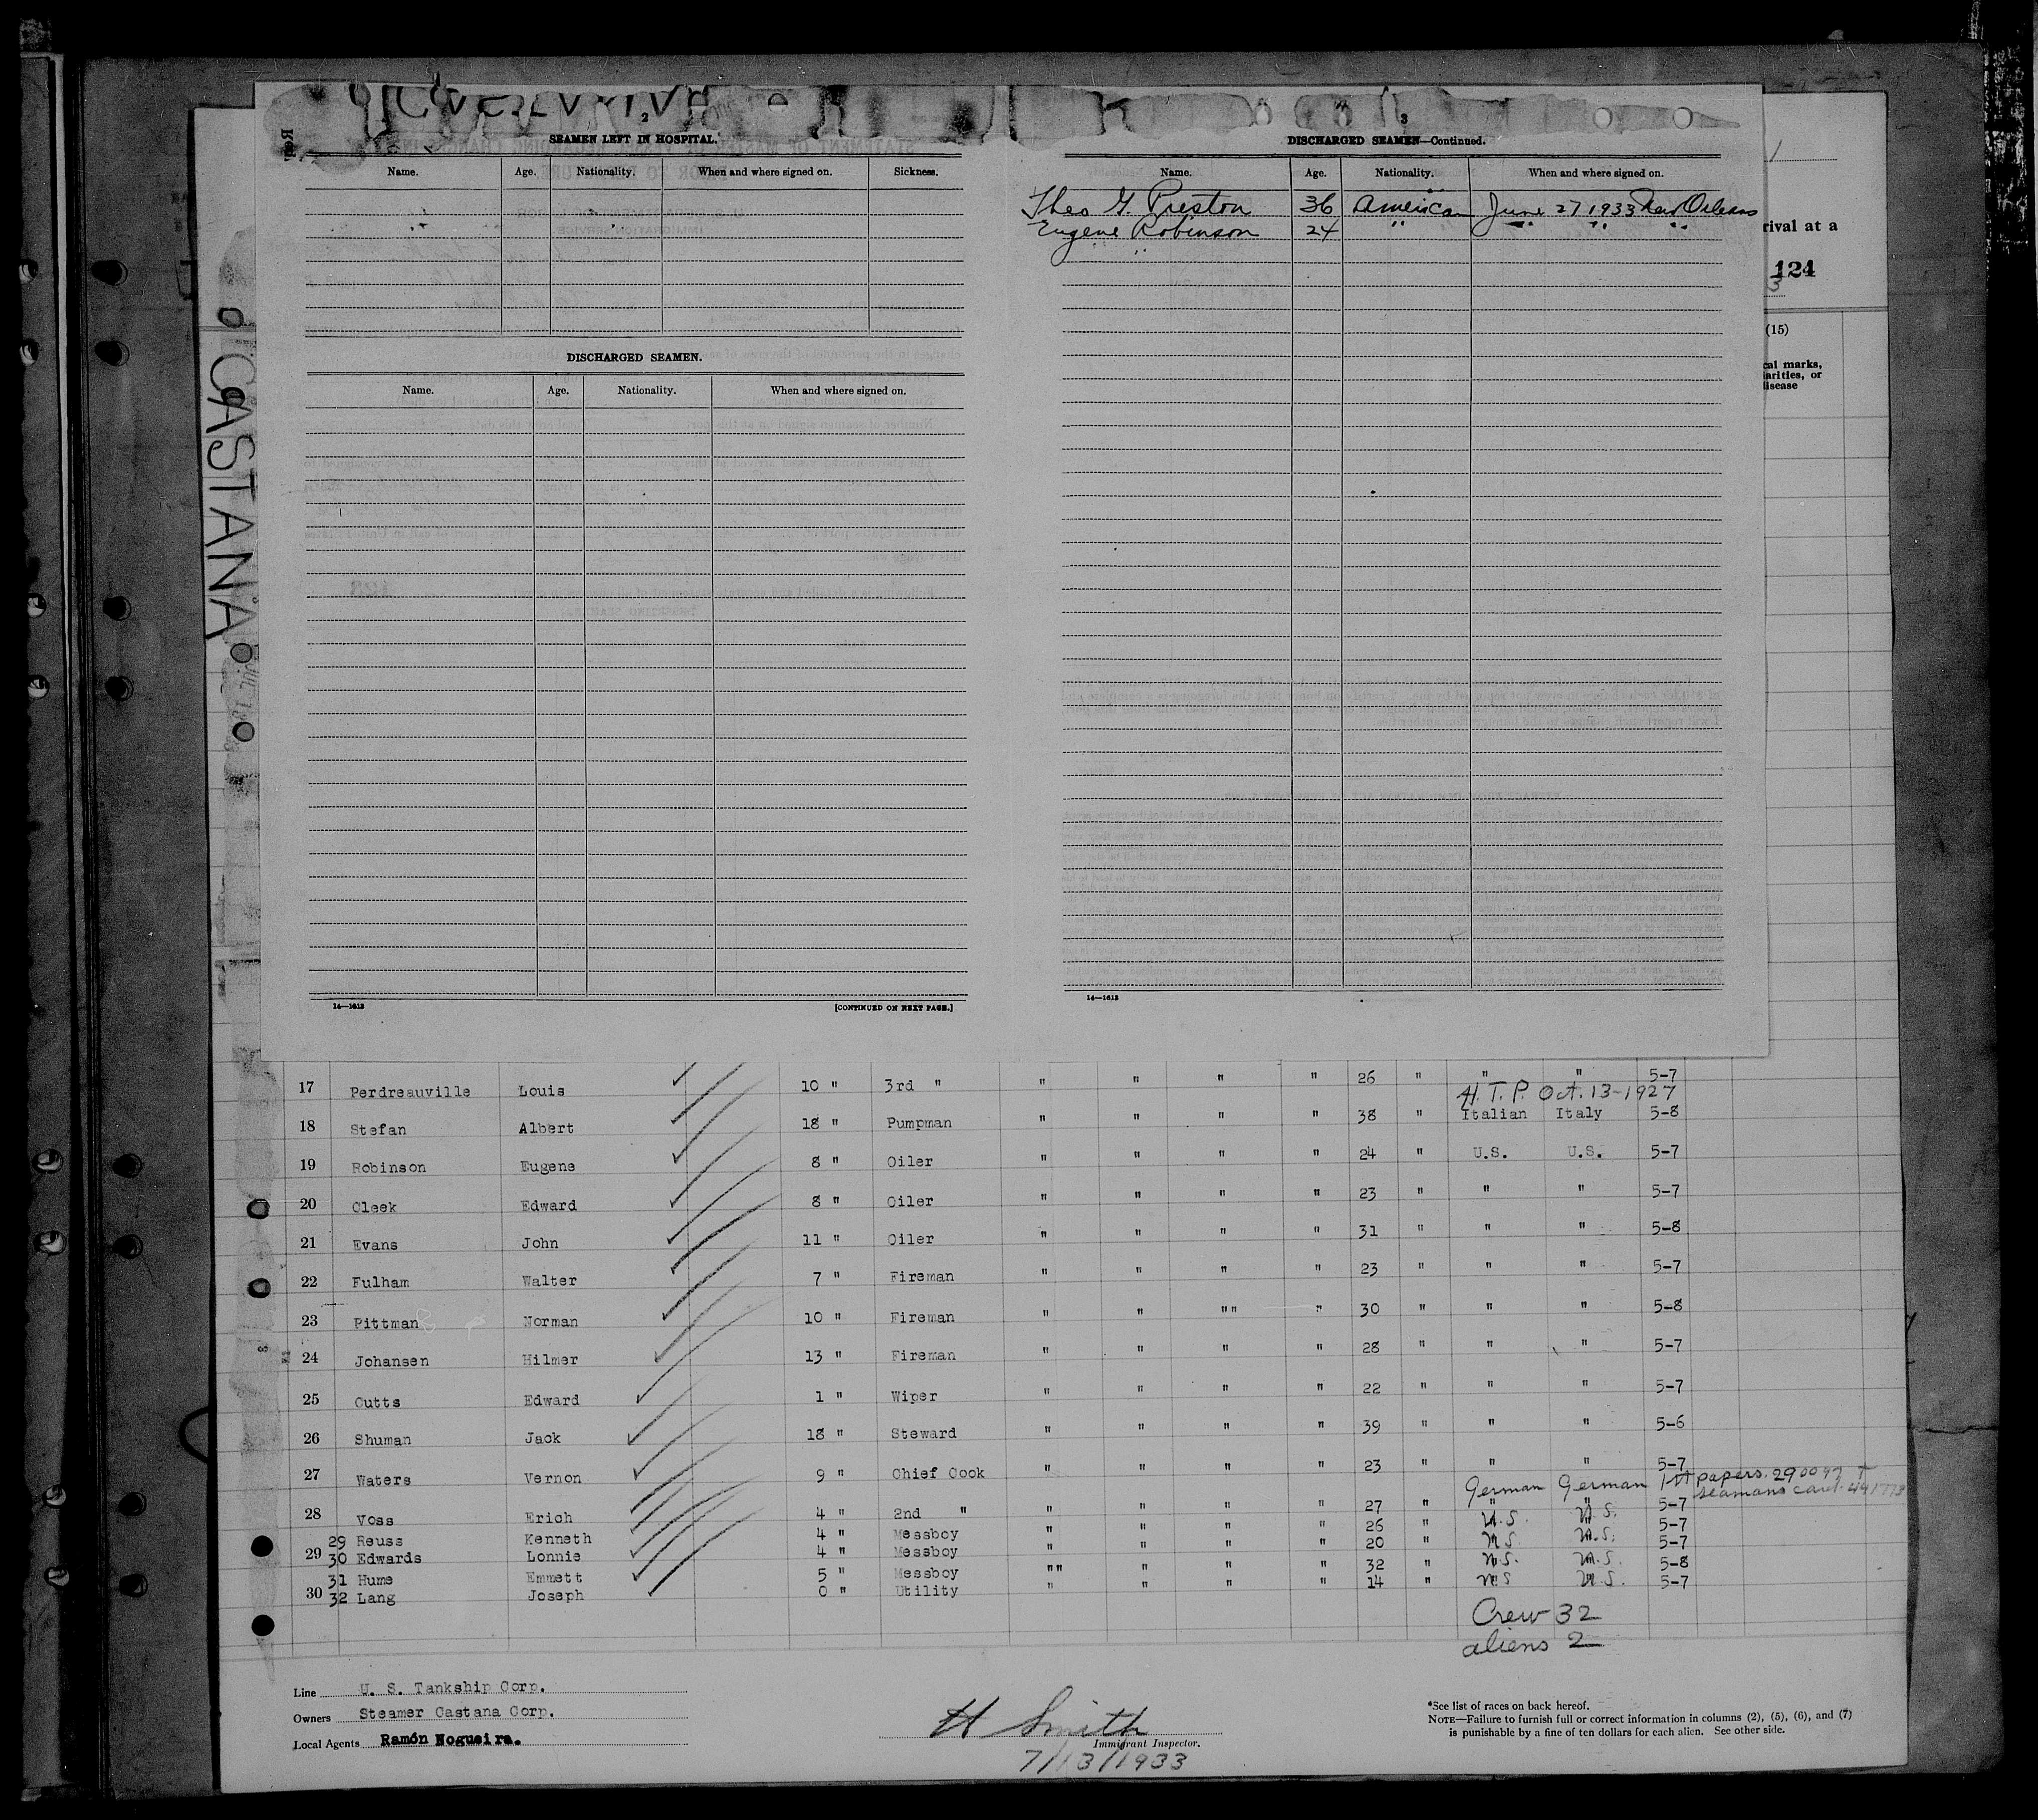 2
SEAMEN LEFT IN HOSPITAL.
Name. Age. Nationality. When and where signed on. Sickness.
DISCHARGED SEAMEN.
Name. Age. Nationality. When and where signed on.
14—1613 [CONTINUED ON NEXT PAGE.]
3
DISCHARGED SEAMEN—Continued.
Name. Age. Nationality. When and where signed on.
Theo G. Preston 36 American June 27 1933 New Orleans
Eugene Robinson 24 " " " "
14—1613
rival at a
124
(15)
cal marks,
arities, or
disease
CASTANA
17 Perdreauville Louis 10 " 3rd " " " " " 26 " " " 5-7
H.T.P. Oct. 13-1927
18 Stefan Albert 18 " Pumpman " " " " 38 " Italian Italy 5-8
19 Robinson Eugene 8 " Oiler " " " " 24 " U.S. U.S. 5-7
20 Cleek Edward 8 " Oiler " " " " 23 " " " 5-7
21 Evans John 11 " Oiler " " " " 31 " " " 5-8
22 Fulham Walter 7 " Fireman " " " " 23 " " " 5-7
23 Pittman Norman 10 " Fireman " " "" " 30 " " " 5-8
24 Johansen Hilmer 13 " Fireman " " " " 28 " " " 5-7
25 Cutts Edward 1 " Wiper " " " " 22 " " " 5-7
26 Shuman Jack 18 " Steward " " " " 39 " " " 5-6
27 Waters Vernon 9 " Chief Cook " " " " 23 " " " 5-7
German German 1st papers. 290097
seamans card.
28 Voss Erich 4 " 2nd " " " " " 27 " " " 5-7
29 29 Reuss Kenneth 4 " Messboy " " " " 26 " U.S. U.S. 5-7
30 Edwards Lonnie 4 " Messboy " " " " 20 " U.S. U.S. 5-7
31 Hume Emmett 5 " Messboy "" " " " 32 " U.S. U.S. 5-8
30 32 Lang Joseph 0 " Utility " " " " 14 " U.S. U.S. 5-7
Crew 32
aliens 2
Line U. S. Tankship Corp.
Owners Steamer Castana Corp.
Local Agents Ramón Nogueira.
H Smith
Immigrant Inspector.
7/13/1933
*See list of races on back hereof.
NOTE—Failure to furnish full or correct information in columns (2), (5), (6), and (7)
is punishable by a fine of ten dollars for each alien. See other side.